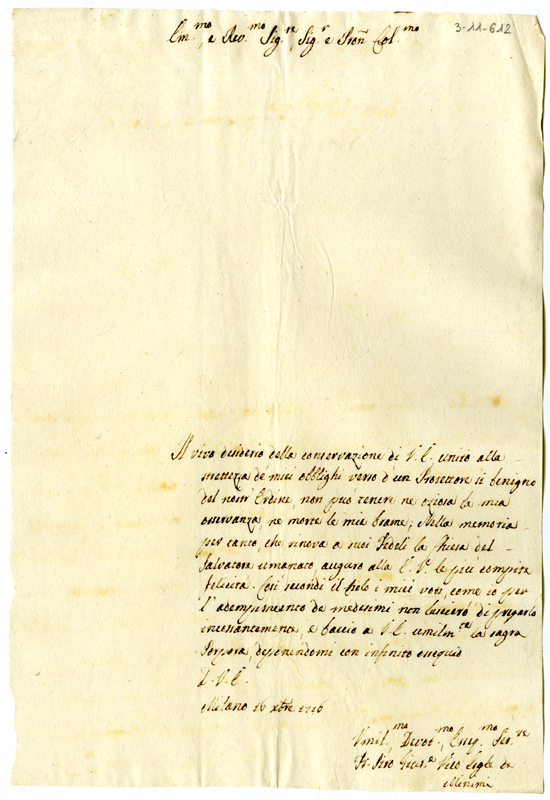 3-11-612
Em.mo, e Rev.mo Sig.re, Sig.r e Pron Col.mo
Il vivo desiderio della conservazione di V. E. unito alla
strettezza de' miei obblighi verso d'un Protettore sì benigno
del nostr' Ordine, non può tenere ne oziosa la mia
osservanza ne morte le mie brame; Nella memoria
per tanto, che rinova a suoi Fedeli la Chiesa del
Salvatore umanato auguro alla E. V. le più compite
felicità. Così secondi il Cielo i miei voti, come io per
l'adempimento de medesimi non lascierò di pregarlo
incessantemente, e baccio a V. E. umilm.te la sagra
Porpora, dicendomi con infinito ossequio
D. V. E.
Milano 16 xbre 1716
Umil.mo, Devot.mo, Ser.re
Fr.
Minimi